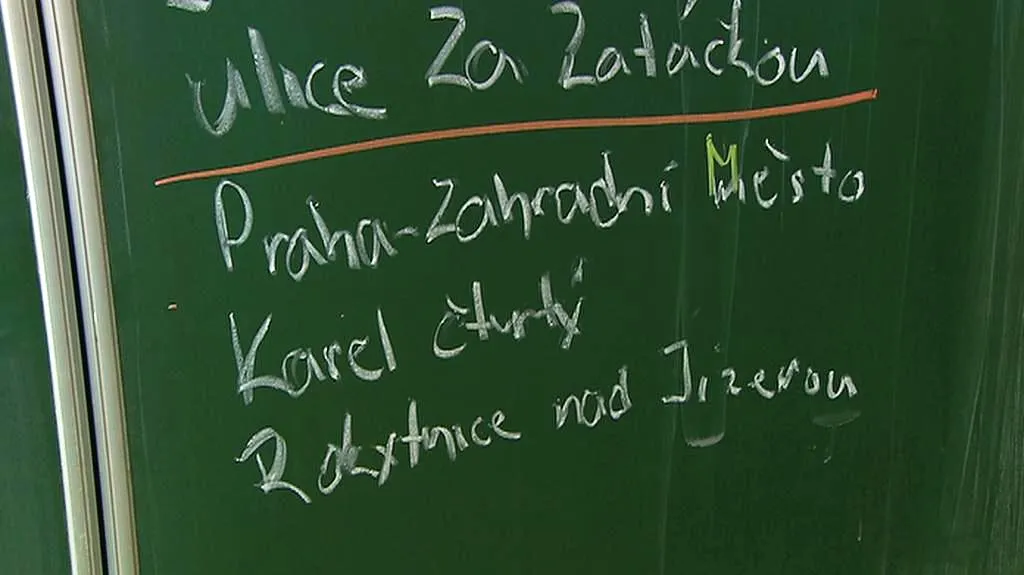 ulice Za Zatáčkou
Praha-Zahradní Město
Karel čtvrtý
Rokytnice nad Jizerou